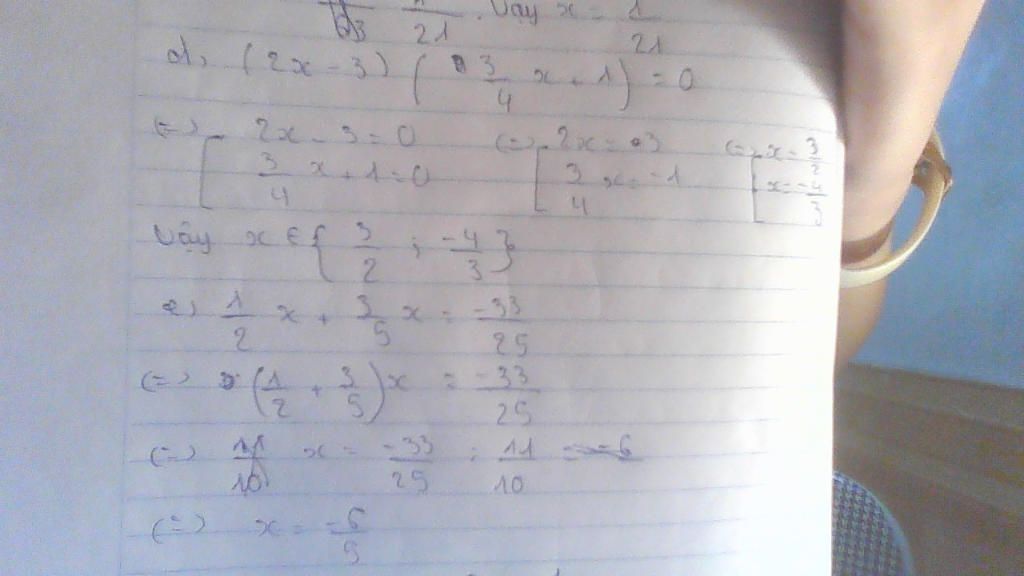 21 . Vậy x = 1/21
d, (2x - 3) (3/4 x + 1) = 0
(=) [ 2x - 3 = 0 (=) [ 2x = 3 (=) [ x = 3/2
3/4 x + 1 = 0 3/4 x = -1 x = -4/3
Vậy x ∈ { 3/2 ; -4/3 }
e, 1/2 x + 3/5 x = -33/25
(=) (1/2 + 3/5) x = -33/25
(=) 11/10 x = -33/25 : 11/10
(=) x = -6/5